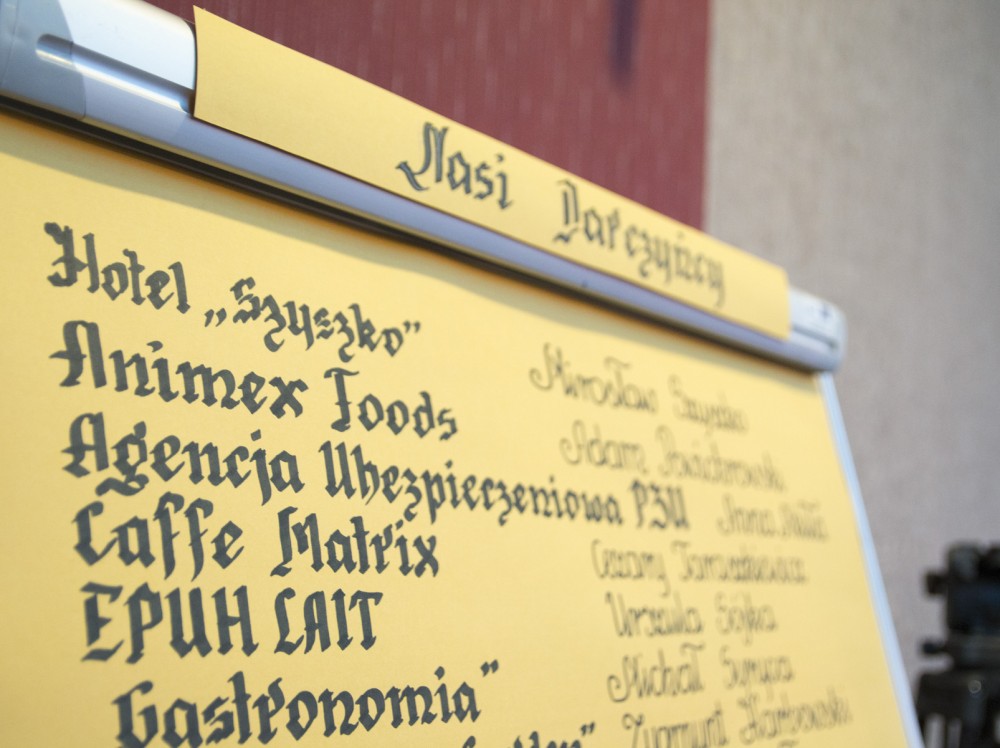 Nasi Darczyńcy
Hotel „Szyszko”
Animex Foods
Agencja Ubezpieczeniowa PZU
Caffe Matrix
EPUH LAIT
Gastronomia”
Mirosław
Adam
Anna
Cezary Tomaszkiewicz
Urszula Sójka
Michał
Zygmunt